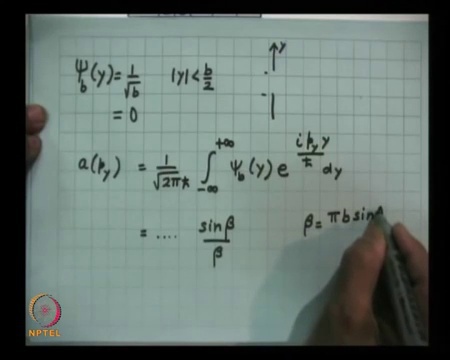 Ψ_b(y) = 1/√b |y| < b/2 y
= 0
a(p_y) = 1/√(2πħ) ∫_{-∞}^{+∞} Ψ_b(y) e^{i p_y y/ħ} dy
= .... sin β/β β = πb sin
NPTEL